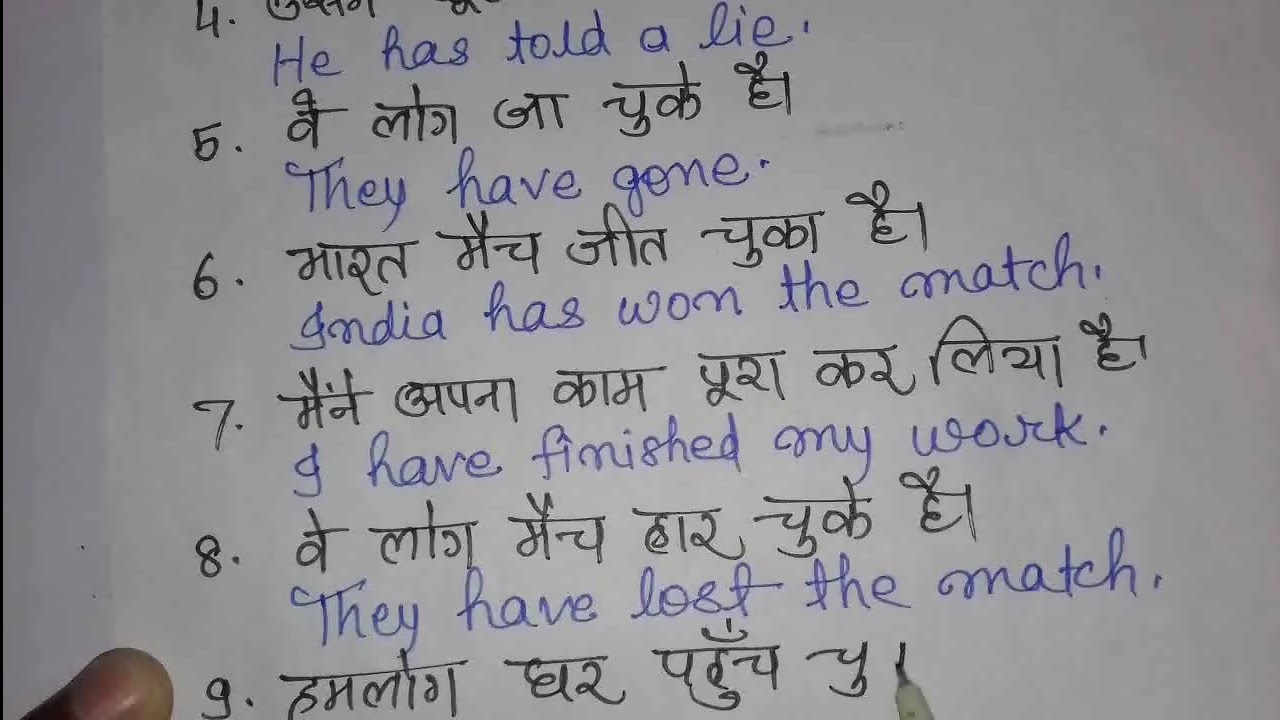 4. उसने
He has told a lie.
5. वे लोग जा चुके है।
They have gone.
6. भारत मैच जीत चुका है।
India has won the match.
7. मैंने अपना काम पूरा कर लिया है।
I have finished my work.
8. वे लोग मैच हार चुके है।
They have lost the match.
9. हमलोग घर पहुँच चु